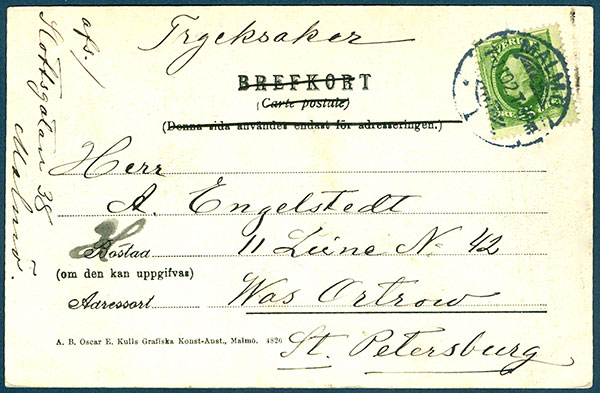 Trycksaker
BREFKORT
(Carte postale)
(Denna sida användes endast för adresseringen.)
Herr
A. Engelstedt
Bostad 11 Liine No 42
(om den kan uppgifvas)
Adressort Was Ortrow
St. Petersburg
A. B. Oscar E. Kulls Grafiska Konst-Anst., Malmö. 4826
afs./
38
Malmö.
MALMÖ